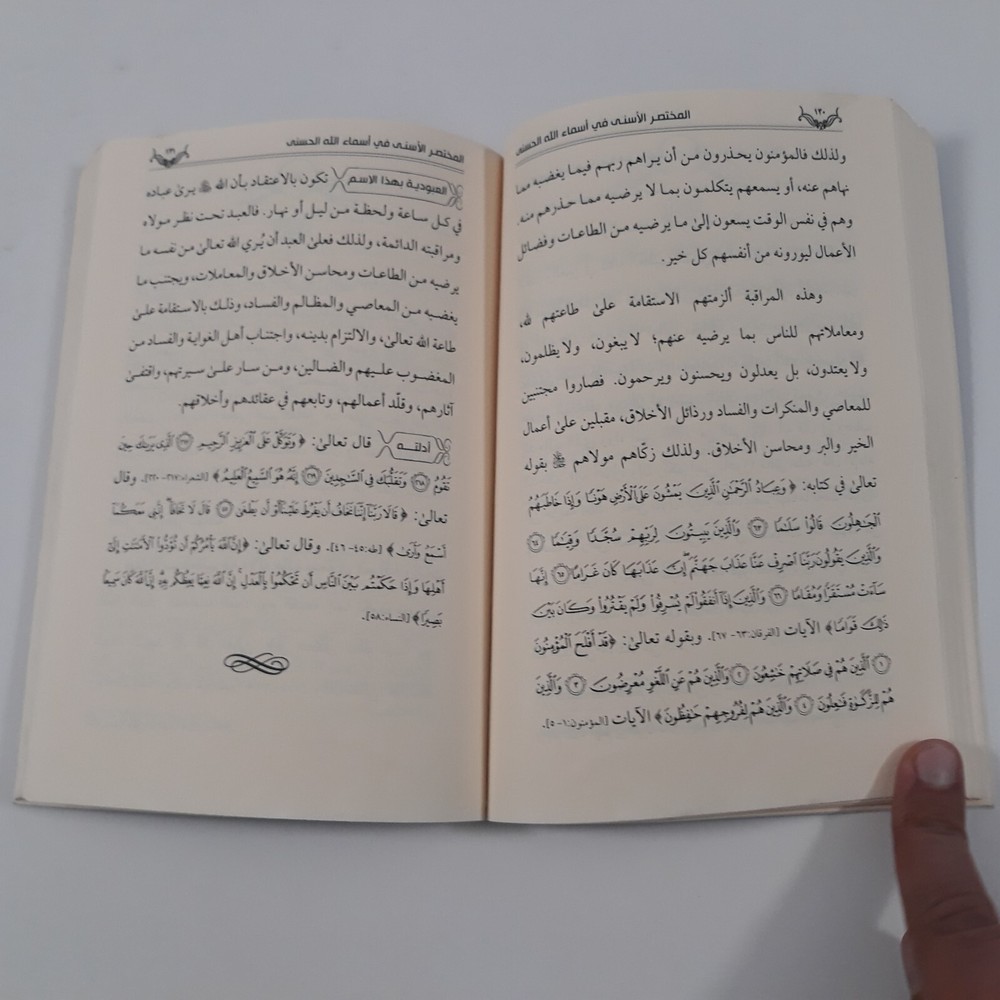 ١٢٠
المختصر الأسنى في أسماء الله الحسنى
ولذلك فالمؤمنون يحذرون من أن يراهم ربهم فيما يغضبه مما
نهاهم عنه، أو يسمعهم يتكلمون بما لا يرضيه مما حذرهم منه.
وهم في نفس الوقت يسعون إلىٰ ما يرضيه من الطاعات وفضائل
الأعمال ليورونه من أنفسهم كل خير.
وهذه المراقبة ألزمتهم الاستقامة علىٰ طاعتهم لله،
ومعاملاتهم للناس بما يرضيه عنهم؛ لا يبغون، ولا يظلمون،
ولا يعتدون، بل يعدلون ويحسنون ويرحمون. فصاروا مجتنبين
للمعاصي والمنكرات والفساد ورذائل الأخلاق، مقبلين علىٰ أعمال
الخير والبر ومحاسن الأخلاق. ولذلك زكّاهم مولاهم ﷻ بقوله
تعالىٰ في كتابه: ﴿وَعِبَادُ الرَّحْمَٰنِ الَّذِينَ يَمْشُونَ عَلَى الْأَرْضِ هَوْنًا وَإِذَا خَاطَبَهُمُ
الْجَاهِلُونَ قَالُوا سَلَامًا ٦٣ وَالَّذِينَ يَبِيتُونَ لِرَبِّهِمْ سُجَّدًا وَقِيَامًا ٦٤
وَالَّذِينَ يَقُولُونَ رَبَّنَا اصْرِفْ عَنَّا عَذَابَ جَهَنَّمَ إِنَّ عَذَابَهَا كَانَ غَرَامًا ٦٥ إِنَّهَا
سَاءَتْ مُسْتَقَرًّا وَمُقَامًا ٦٦ وَالَّذِينَ إِذَا أَنفَقُوا لَمْ يُسْرِفُوا وَلَمْ يَقْتُرُوا وَكَانَ بَيْنَ
ذَٰلِكَ قَوَامًا﴾ الآيات [الفرقان:٦٣- ٦٧]. وبقوله تعالىٰ: ﴿قَدْ أَفْلَحَ الْمُؤْمِنُونَ
١ الَّذِينَ هُمْ فِي صَلَاتِهِمْ خَاشِعُونَ ٢ وَالَّذِينَ هُمْ عَنِ اللَّغْوِ مُعْرِضُونَ ٣ وَالَّذِينَ
هُمْ لِلزَّكَاةِ فَاعِلُونَ ٤ وَالَّذِينَ هُمْ لِفُرُوجِهِمْ حَافِظُونَ﴾ الآيات [المؤمنون:١- ٥].
المختصر الأسنى في أسماء الله الحسنى
العبودية بهذا الاسم تكون بالاعتقاد بأن الله ﷻ يرىٰ عباده
في كل ساعة ولحظة من ليل أو نهار. فالعبد تحت نظر مولاه
ومراقبته الدائمة، ولذلك فعلىٰ العبد أن يُري الله تعالىٰ من نفسه ما
يرضيه من الطاعات ومحاسن الأخلاق والمعاملات، ويجتنب ما
يغضبه من المعاصي والمظالم والفساد، وذلك بالاستقامة علىٰ
طاعة الله تعالىٰ، والالتزام بدينه، واجتناب أهل الغواية والفساد من
المغضوب عليهم والضالين، ومن سار علىٰ سيرتهم، واقتفىٰ
آثارهم، وقلّد أعمالهم، وتابعهم في عقائدهم وأخلاقهم.
أدلتـــه قال تعالىٰ: ﴿وَتَوَكَّلْ عَلَى الْعَزِيزِ الرَّحِيمِ ٢١٧ الَّذِي يَرَاكَ حِينَ
تَقُومُ ٢١٨ وَتَقَلُّبَكَ فِي السَّاجِدِينَ ٢١٩ إِنَّهُ هُوَ السَّمِيعُ الْعَلِيمُ﴾ [الشعراء:٢١٧-٢٢٠]. وقال
تعالىٰ: ﴿قَالَا رَبَّنَا إِنَّنَا نَخَافُ أَن يَفْرُطَ عَلَيْنَا أَوْ أَن يَطْغَىٰ ٤٥ قَالَ لَا تَخَافَا إِنَّنِي مَعَكُمَا
أَسْمَعُ وَأَرَىٰ﴾ [طه:٤٥-٤٦]. وقال تعالىٰ: ﴿إِنَّ اللَّهَ يَأْمُرُكُمْ أَن تُؤَدُّوا الْأَمَانَاتِ إِلَىٰ
أَهْلِهَا وَإِذَا حَكَمْتُم بَيْنَ النَّاسِ أَن تَحْكُمُوا بِالْعَدْلِ إِنَّ اللَّهَ نِعِمَّا يَعِظُكُم بِهِ إِنَّ اللَّهَ كَانَ سَمِيعًا
بَصِيرًا﴾ [النساء:٥٨].